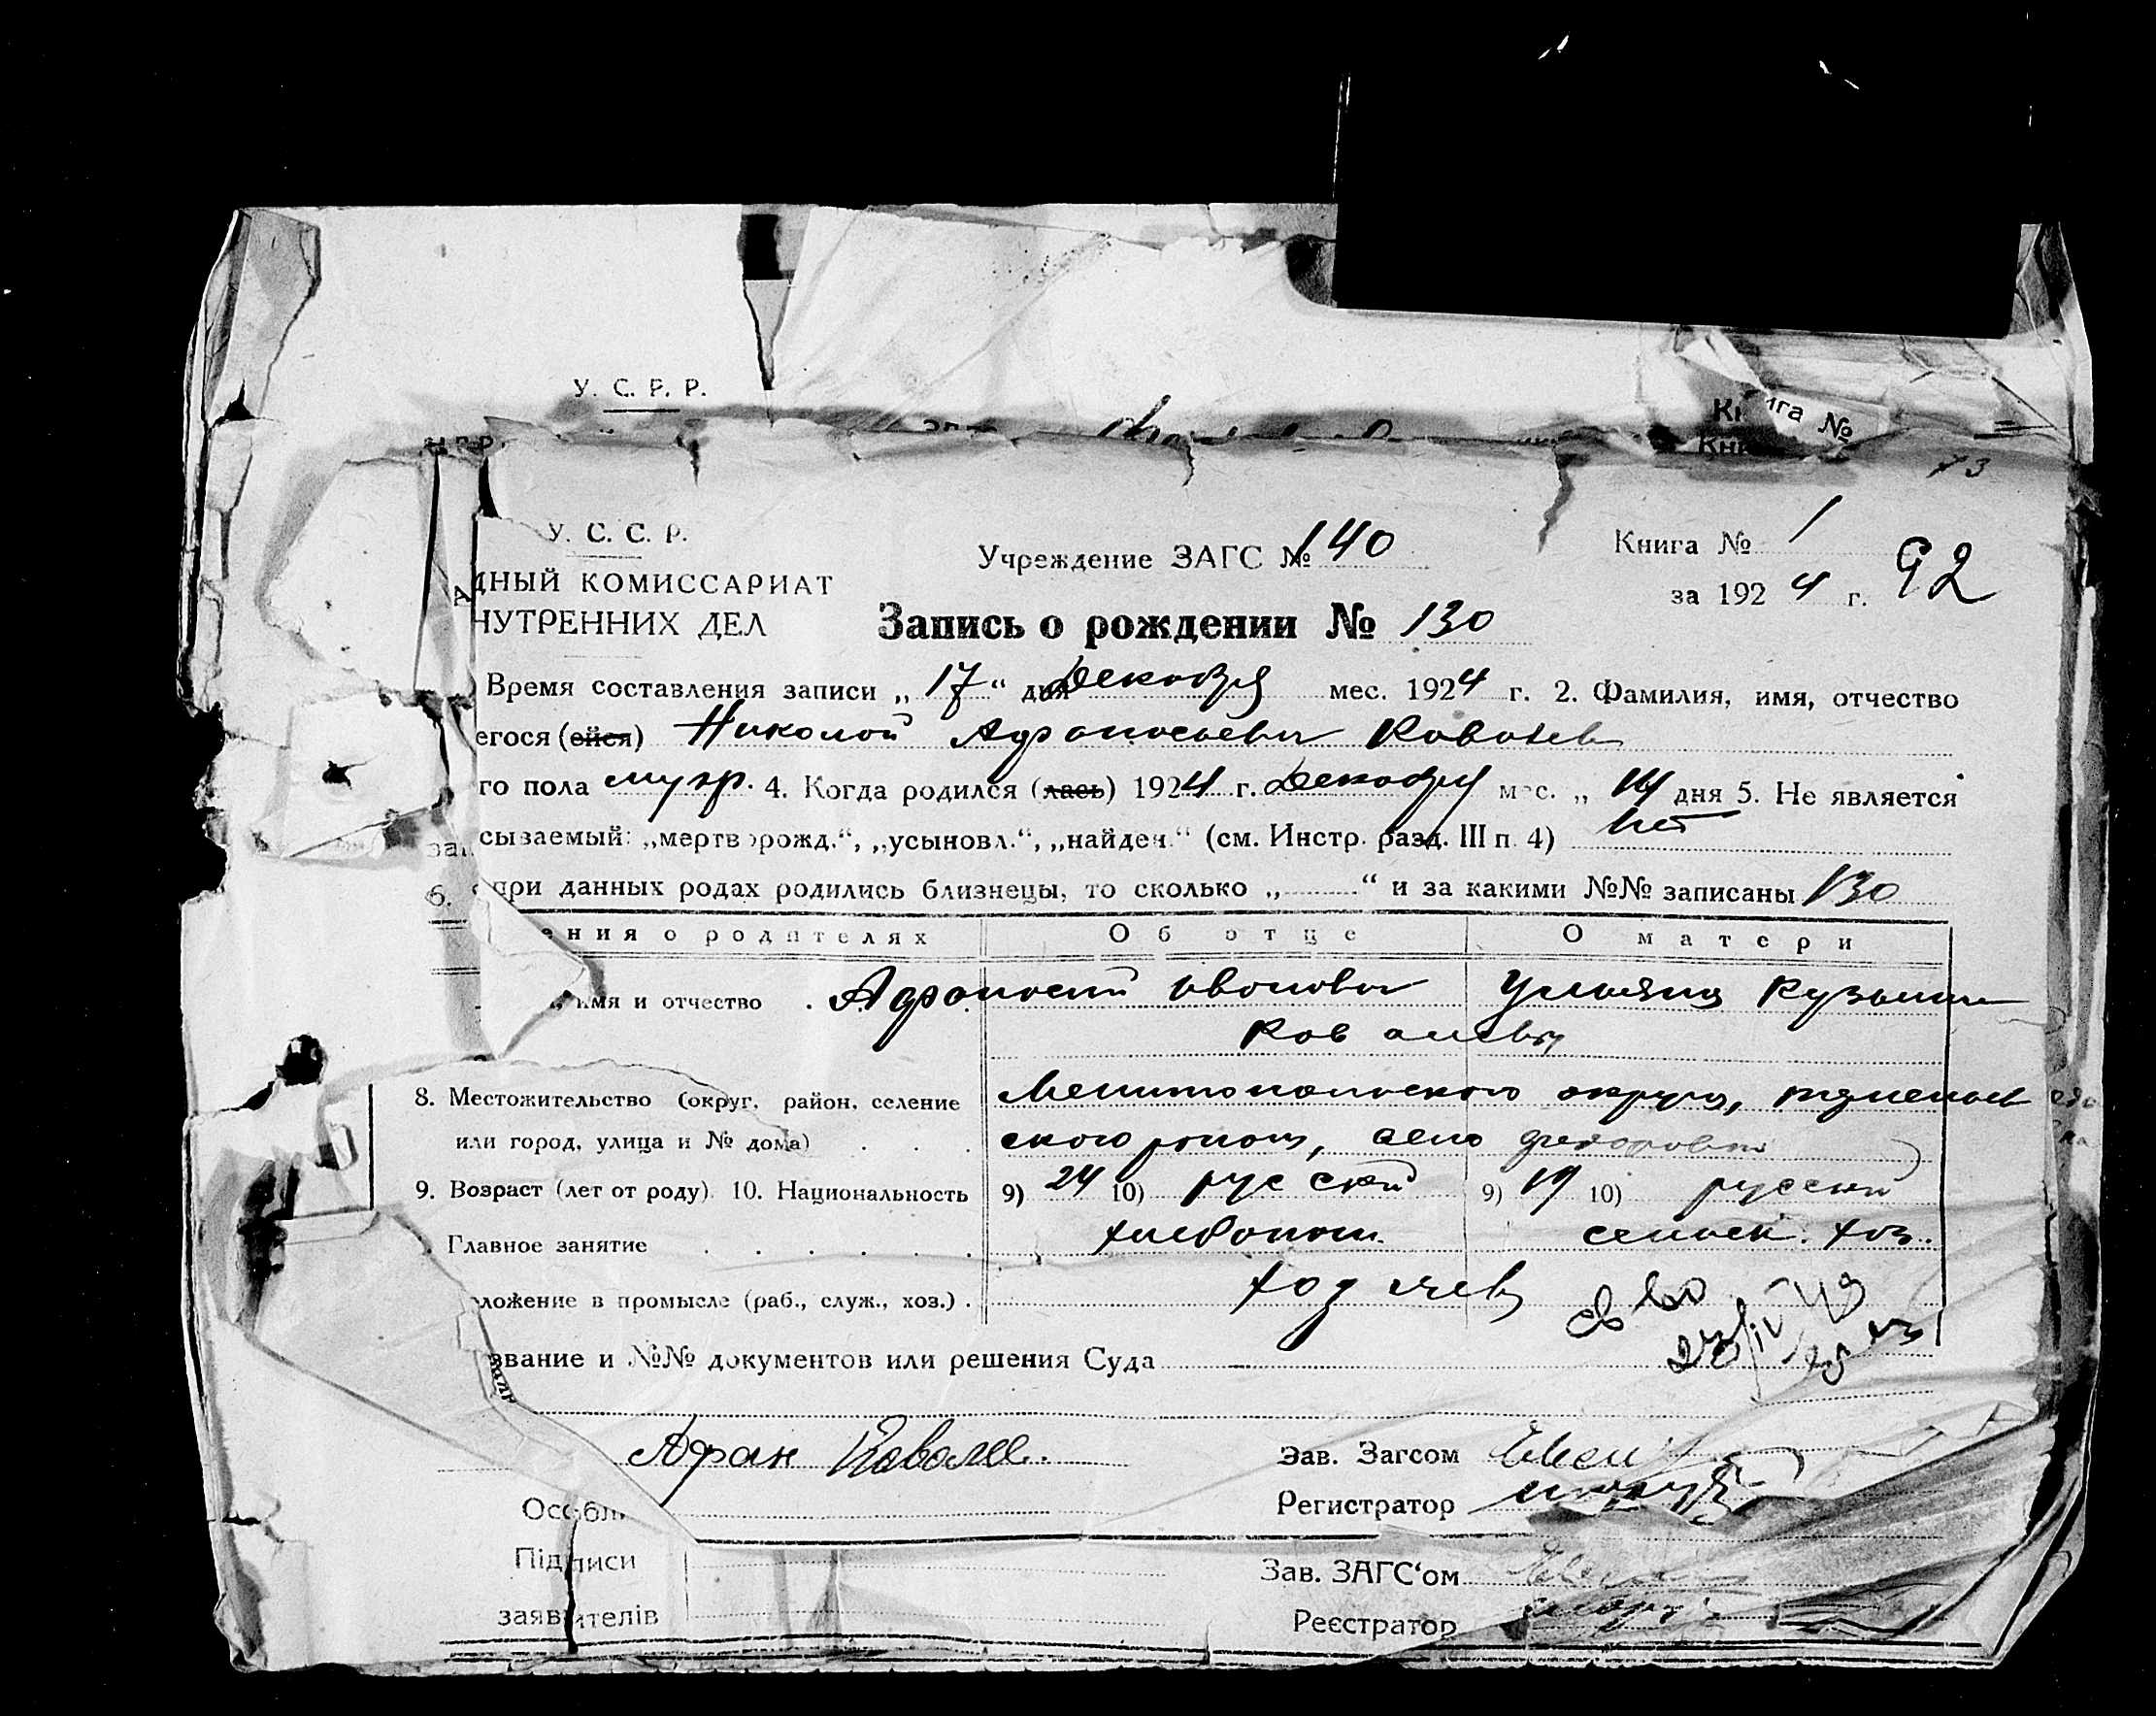 У. С. Р. Р.
Книга №
73
У. С. С. Р.
Учреждение ЗАГС № 140
Книга № 1
за 1924 г. 92
ДНЫЙ КОМИССАРИАТ
НУТРЕННИХ ДЕЛ
Запись о рождении № 130
Время составления записи „17“ дня Декабря мес. 1924 г. 2. Фамилия, имя, отчество
егося (ейся) Николой Афонасьевич Ковалев
го пола муж. 4. Когда родился (лась) 1924 г. Декабря мес. „ 14 дня 5. Не является
сываемый: „мертворожд.“, „усыновл.“, „найден.“ (см. Инстр. разд. III п. 4) нет
6. при данных родах родились близнецы, то сколько „ “ и за какими №№ записаны 130
ения о родителях Об отце О матери
имя и отчество . Афонасий Ивонович Ульяна Кузьмин
Ковалевы
8. Местожительство (округ, район, селение Мелитопольского округа,
или город, улица и № дома) . . . ского района, село
9. Возраст (лет от роду) 10. Национальность 9) 24 10) русский 9) 19 10) русский
Главное занятие . . . . . . хлебопаш. сельск. хоз.
ложение в промысле (раб., служ., хоз.) .
звание и №№ документов или решения Суда —
Афан Ковалев.
Зав. Загсом
Регистратор
Особл
Підписи
Зав. ЗАГС‘ом
заявителів
Реєстратор